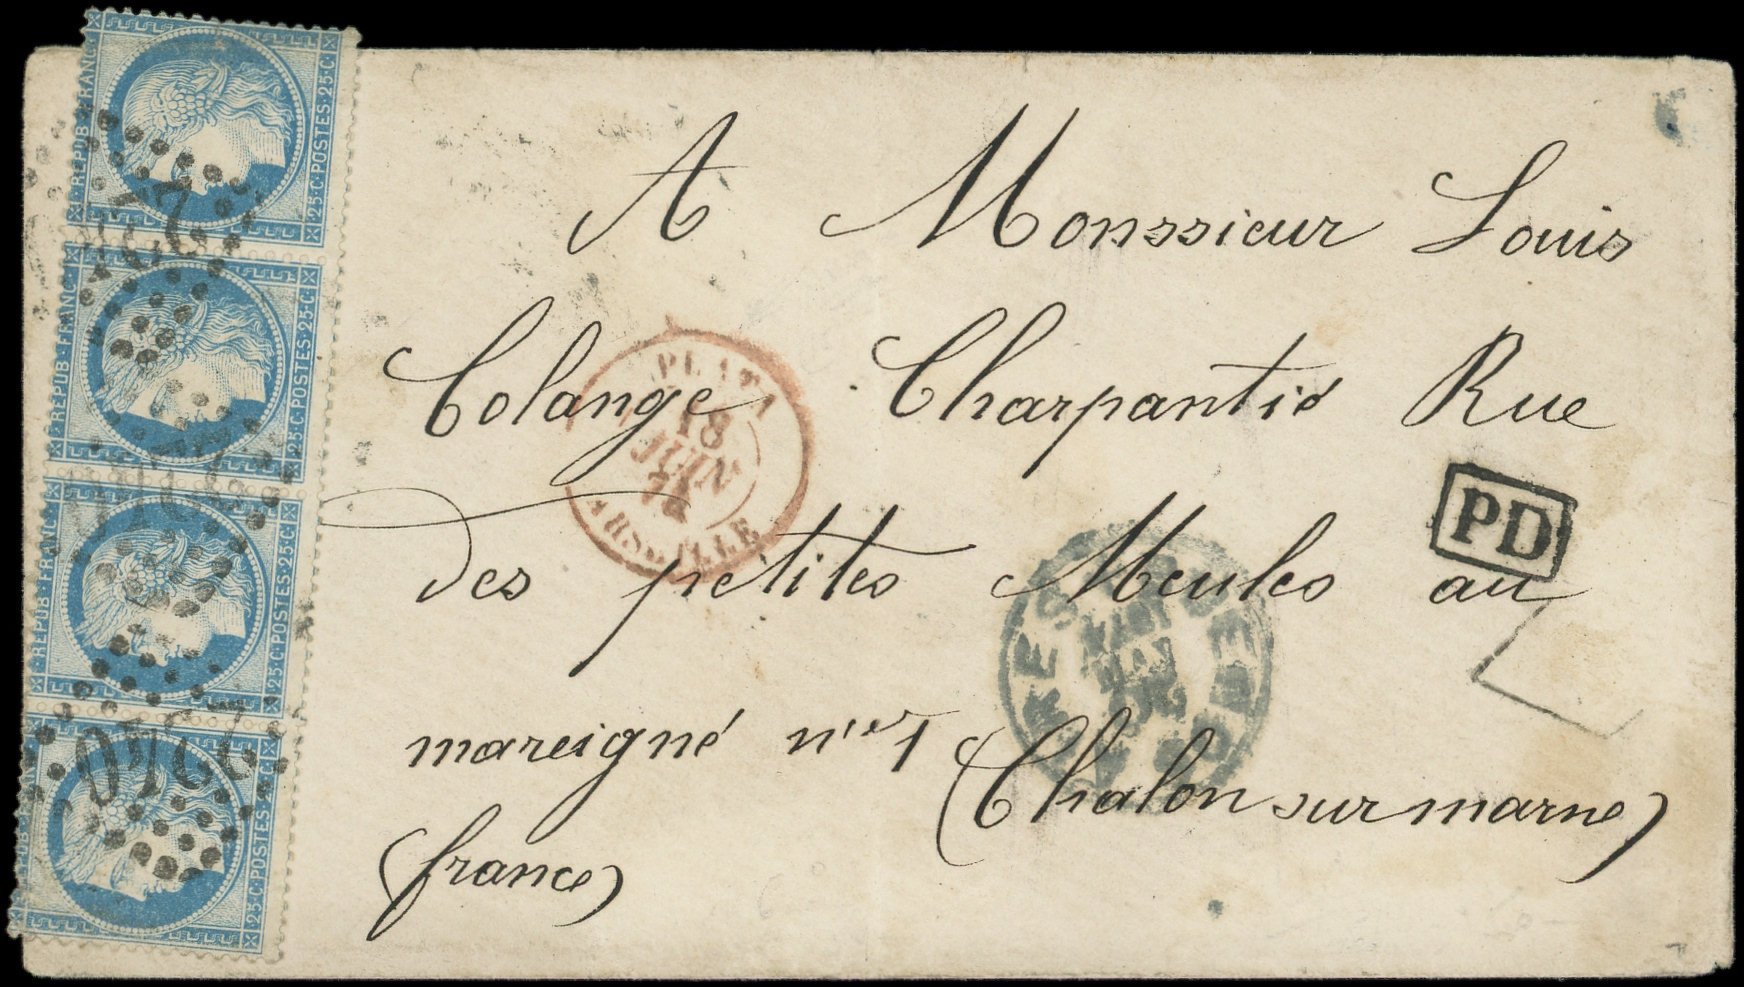 A Monssieur Louis
Colange Charpantié Rue
des petites Meules au
mareigné n'er 1
(Chalon sur marne)
(france)
PD
PLATA
18
JUIN
ARSEILLE
REPUB·FRANC·
25·C·POSTES·25·C·
REPUB·FRANC·
25·C·POSTES·25·C·
REPUB·FRANC·
25·C·POSTES·25·C·
REPUB·FRANC
25·C·POSTES·25·C·
2240